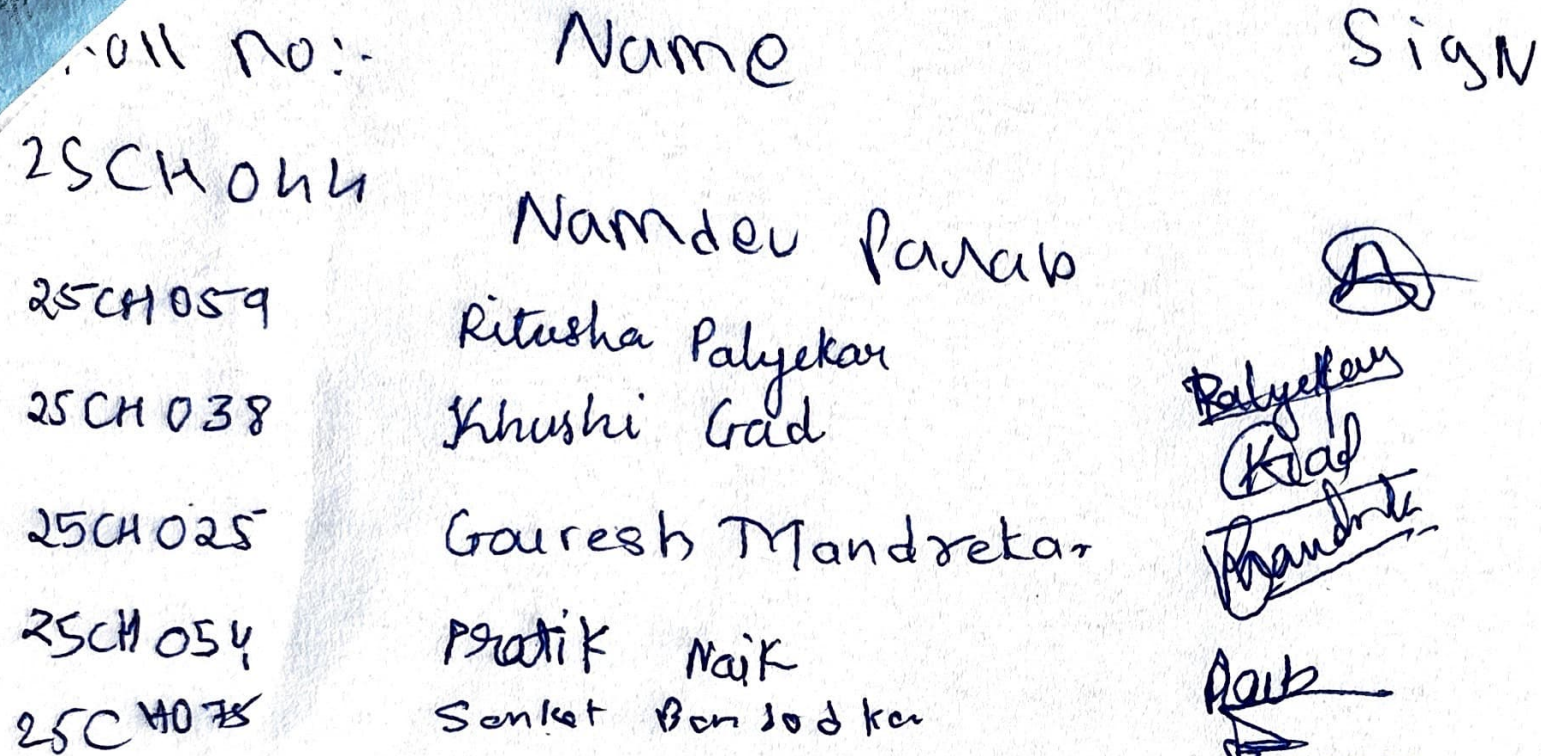 oll no:- Name Sign
25CH044 Namdev Parab
25CH059 Ritusha Palyekar Palyekar
25CH038 Khushi Gad Gad
25CH025 Gauresh Mandrekar
25CH054 Pratik Naik
25CH075 Sanket